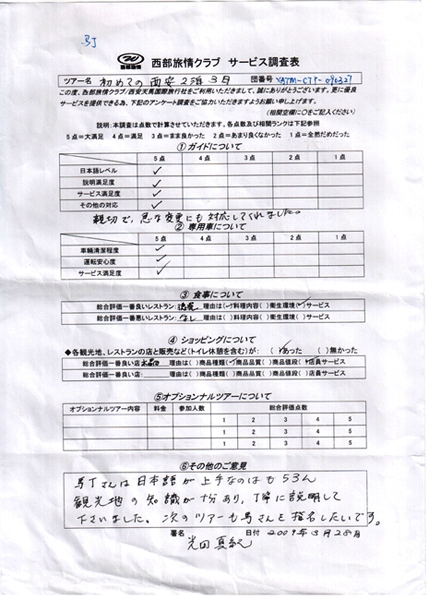 馬J
西部旅情クラブ サービス調査表
ツアー名 初めての西安2泊3日 団番号 XATM-CTP-090327
この度、西部旅情クラブ/西安天馬国際旅行社をご利用いただきまして、誠にありがとうございます。更に優良
サービスを提供できる為、下記のアンケート調査をご協力いただきますようお願い申し上げます。
(相関空欄に○をご記入ください)
説明:本調査は点数で計算させていただきます。各点数及び相関ランクは下記参照
5点=大満足 4点=満足 3点=まま良かった 2点=あまり良くなかった 1点=全然だめだった
①ガイドについて
5点 4点 3点 2点 1点
日本語レベル ✓
説明満足度 ✓
サービス満足度 ✓
その他の対応 ✓
親切で、急な変更にも対応してくれました。
②専用車について
5点 4点 3点 2点 1点
車輛清潔程度 ✓
運転安心度 ✓
サービス満足度 ✓
③食事について
総合評価一番良いレストラン: 理由は(✓)料理内容( )衛生環境(✓)サービス
総合評価一番悪いレストラン: なし 理由は( )料理内容( )衛生環境( )サービス
④ショッピングについて
◆各観光地、レストランの店と販売など(トイレ休憩を含む)が: (✓)あった ( )無かった
総合評価一番良い店: 理由は( )商品種類(✓)商品品質( )商品値段(✓)店員サービス
総合評価一番悪い店: 理由は( )商品種類( )商品品質( )商品値段( )店員サービス
⑤オプショナルツアーについて
オプショナルツアー内容 料金 参加人数 総合評価点数
1 2 3 4 5
1 2 3 4 5
1 2 3 4 5
⑥その他のご意見
馬Jさんは日本語が上手なのはもちろん
観光地の知識が十分あり、丁寧に説明して
下さいました。次のツアーも馬さんを指名したいです。
署名 日付 2009年3月28日
光田